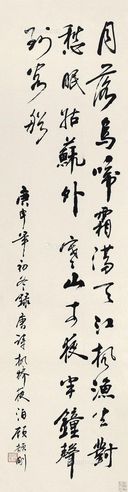 月落烏啼霜滿天江楓漁火對
愁眠姑蘇外寒山寺夜半鐘聲
到客船
庚申年初冬錄唐詩楓橋夜泊顧